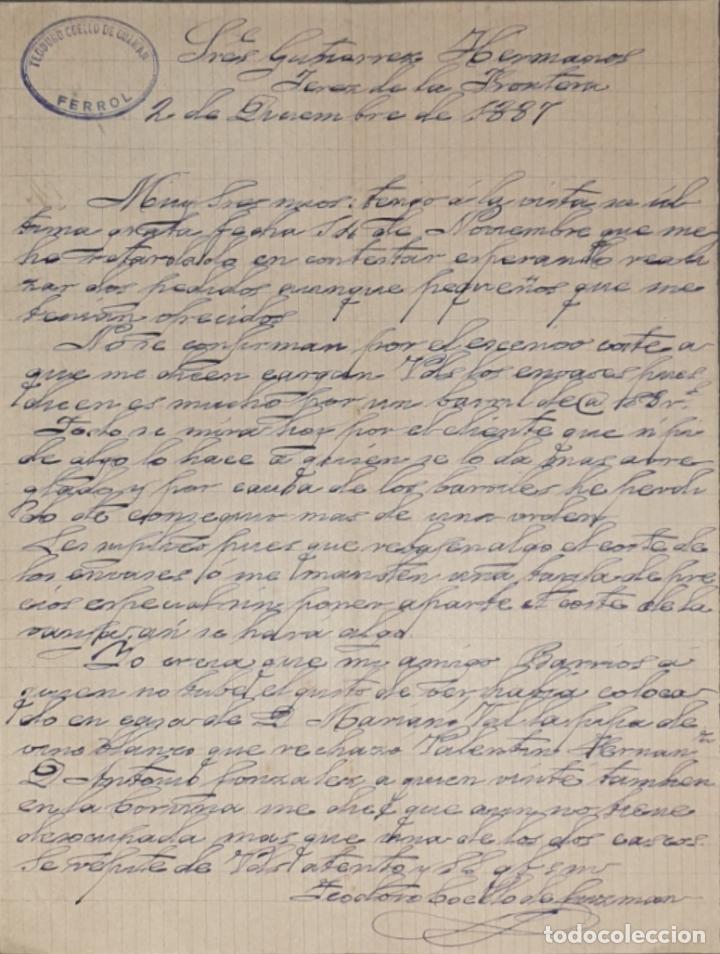 TEODORO COELLO DE GUZMAN
FERROL
Sres Gutierrez Hermanos
Jerez de la Frontera
2 de Diciembre de 1887
Muy Sres mios: tengo á la vista su úl
tima grata fecha 14 de Noviembre que me
he retardado en contestar esperando reali
zar dos pedidos aunque pequeños que me
tenian ofrecidos
No se confirman por el escesivo coste a
que me dicen cargan Vds los envases pues
dicen es mucho por un barril de @
Todo se mira hoy por el cliente que si pi
de algo lo hace á quien se lo da mas arre
glado y por causa de los barriles he perdi
do de conseguir mas de una orden
Les suplico pues que rebajen algo el coste de
los envases ó me manden una tarifa de pre
cios especial sin poner aparte el coste de la
vasija, asi se hará algo.
Yo creia que mi amigo Barrios á
quien no tube el gusto de ver habia coloca
do en casa de D Mariano Tal la pipa de
vino blanco que rechazo Valentin Fernan
D Antonio Gonzalez a quien visité tambien
en la Coruña me dice que aun no tiene
desocupada mas que una de los dos cascos.
Se repite de Vds atento y SS q b s m
Teodoro Coello de Guzman
todocoleccion